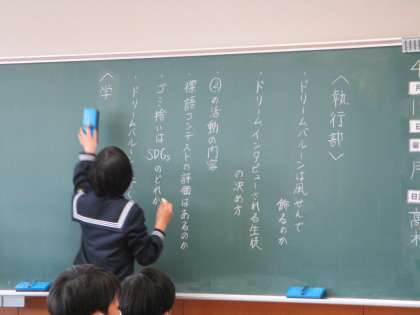 〈執行部〉
・ドリームバルーンは風せんで
飾るのか
・ドリームインタビューされる生徒
の決め方
・②の活動の内容
・標語コンテストの評価はあるのか
・ゴミ拾いはSDGsのどれか
・ドリームバルーン
〈学